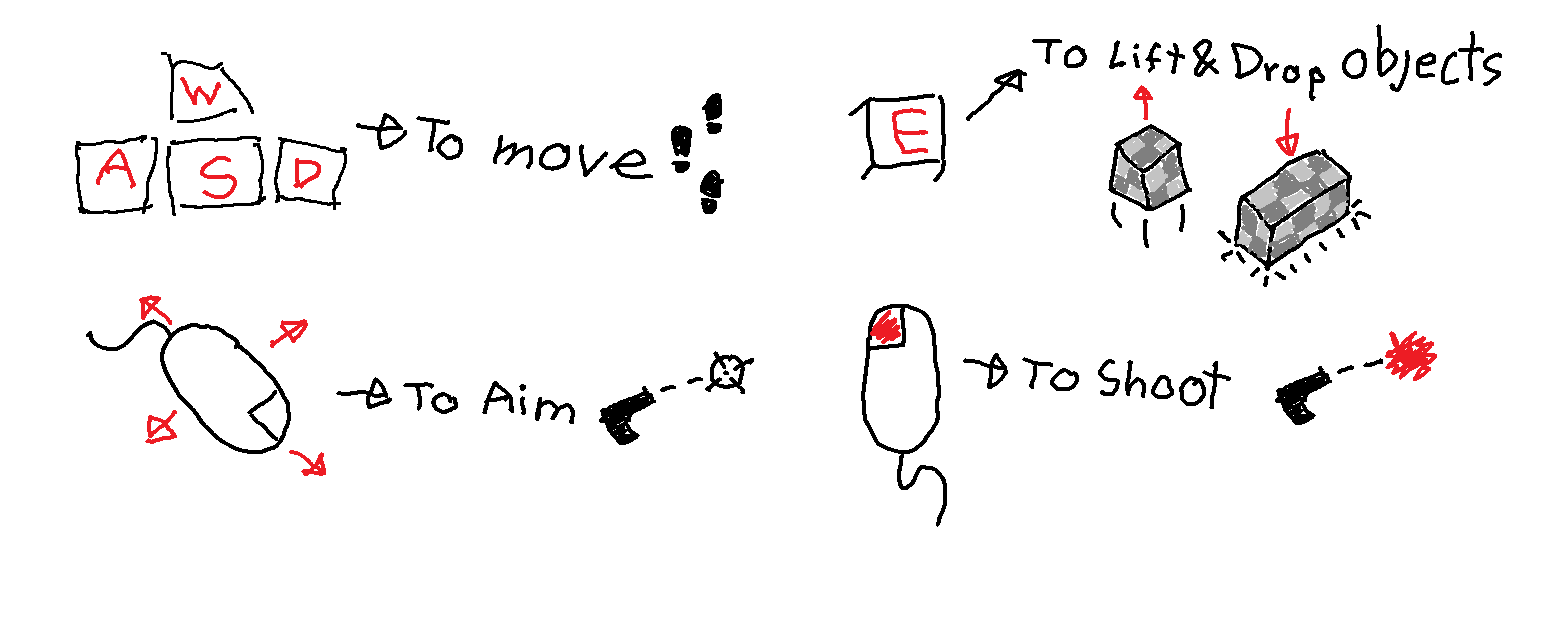 W
A S D
To move
E
To Lift & Drop objects
To Aim
To Shoot